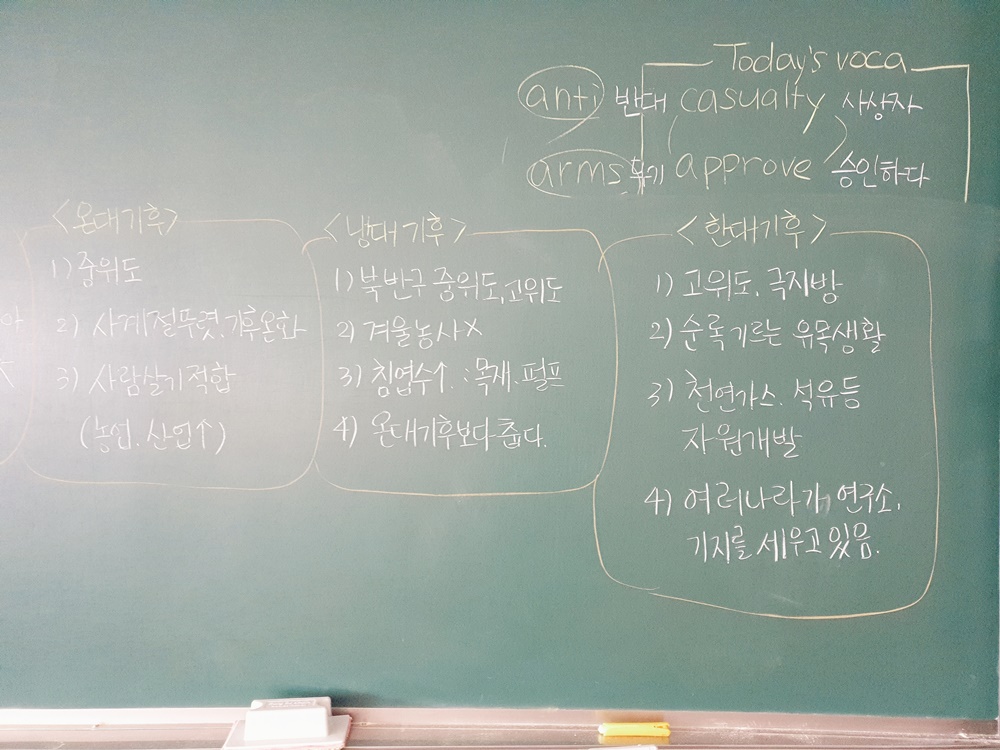 Today's voca
anti 반대 casualty 사상자
arms 무기 approve 승인하다
<온대기후>
1) 중위도
2) 사계절뚜렷, 기후온화
3) 사람살기적합
(농업, 산업↑)
<냉대기후>
1) 북반구 중위도, 고위도
2) 겨울농사 X
3) 침엽수↑ : 목재, 펄프
4) 온대기후보다 춥다.
<한대기후>
1) 고위도, 극지방
2) 순록기르는 유목생활
3) 천연가스, 석유등
자원개발
4) 여러나라가 연구소,
기지를 세우고 있음.